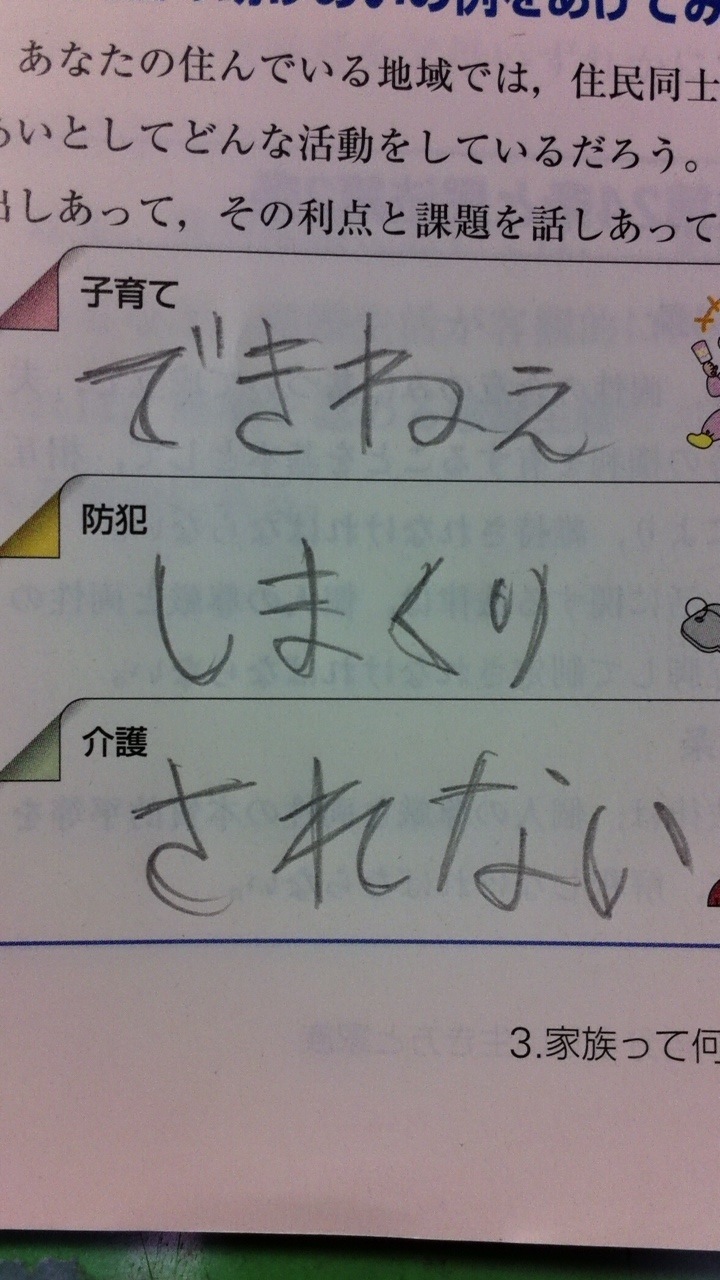 の例をあげてみ
あなたの住んでいる地域では，住民同士
いとしてどんな活動をしているだろう。
出しあって，その利点と課題を話しあって
子育て
できねえ
防犯
しまくり
介護
されない
3.家族って何